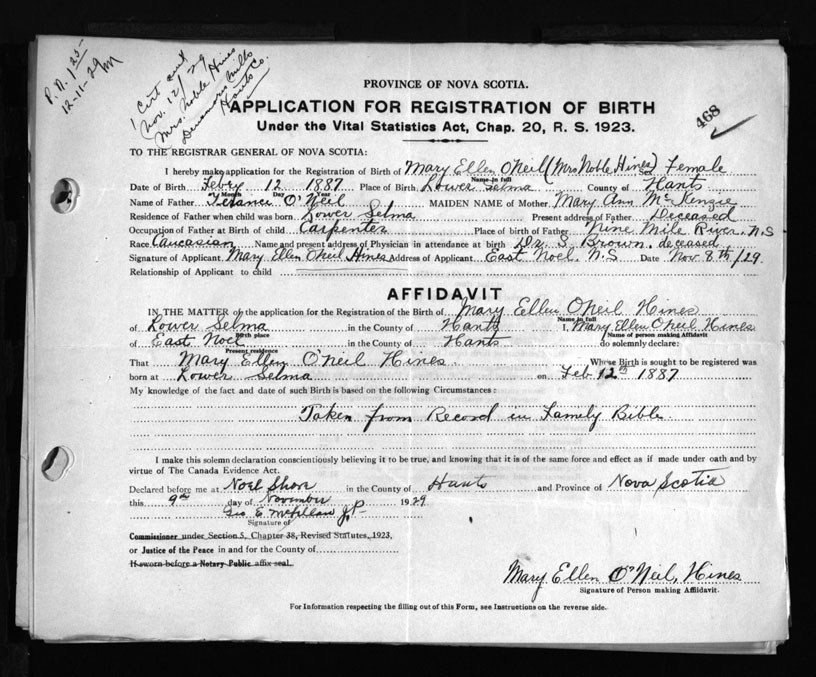 P.N. 1 25
12-11-29
1 Cert sent
Nov. 12/29
Mrs. Noble Hines
Mills
Hants Co.
468
PROVINCE OF NOVA SCOTIA.
APPLICATION FOR REGISTRATION OF BIRTH
Under the Vital Statistics Act, Chap. 20, R. S. 1923.
TO THE REGISTRAR GENERAL OF NOVA SCOTIA:
I hereby make application for the Registration of Birth of Mary Ellen O'Neil (Mrs Noble Hines) Female
Name in full
Date of Birth Febry 12 1887 Place of Birth Lower Selma County of Hants
Month Day Year
Name of Father Terance O'Neil MAIDEN NAME of Mother Mary Ann McKenzie
Residence of Father when child was born Lower Selma Present address of Father Deceased
Occupation of Father at Birth of child Carpenter Place of birth of Father Nine Mile River, N.S
Race Caucasian Name and present address of Physician in attendance at birth Dr. S. Brown. deceased
Signature of Applicant Mary Ellen O'Neil Hines Address of Applicant East Noel. N.S Date Nov 8th/29.
Relationship of Applicant to child
AFFIDAVIT
IN THE MATTER of the application for the Registration of the Birth of Mary Ellen O'Neil Hines
Name in full
of Lower Selma in the County of Hants I, Mary Ellen O'Neil Hines
Birth place Name of person making Affidavit
of East Noel in the County of Hants do solemnly declare:
Present residence
That Mary Ellen O'Neil Hines. Whose Birth is sought to be registered was
born at Lower Selma on Feb 12th 1887
My knowledge of the fact and date of such Birth is based on the following Circumstances:
Taken from Record in Family Bible.
I make this solemn declaration conscientiously believing it to be true, and knowing that it is of the same force and effect as if made under oath and by
virtue of The Canada Evidence Act.
Declared before me at Noel Shore in the County of Hants and Province of Nova Scotia
this 9th day of November 1929
Geo E. J.P.
Signature of
Commissioner under Section 5, Chapter 38, Revised Statutes, 1923,
or Justice of the Peace in and for the County of
If sworn before a Notary Public affix seal.
Mary Ellen O'Neil, Hines
Signature of Person making Affidavit.
For Information respecting the filling out of this Form, see Instructions on the reverse side.